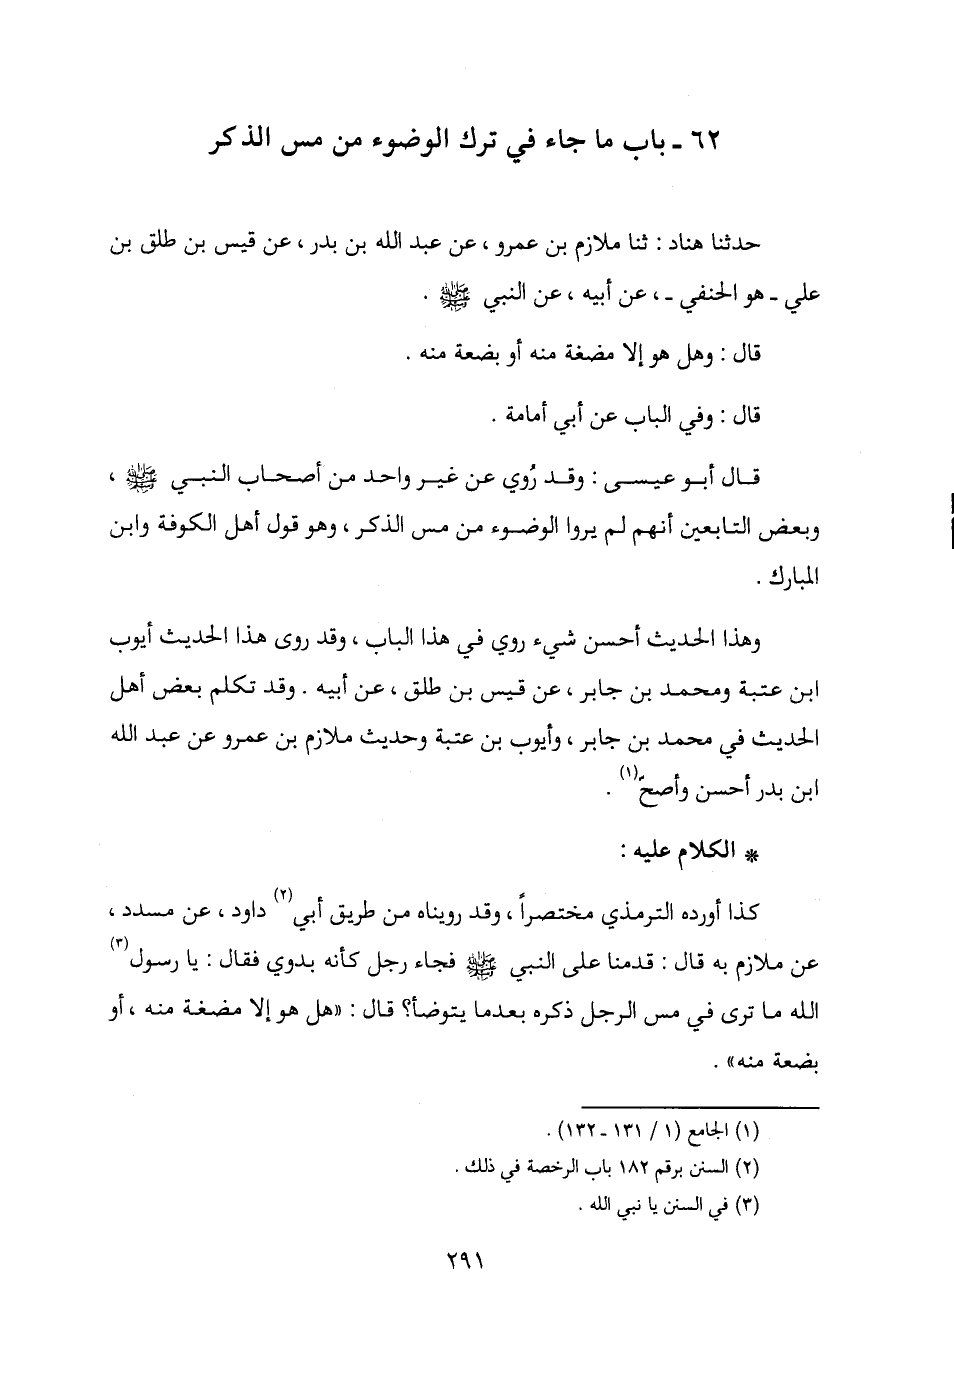 ٦٢ - باب ما جاء في ترك الوضوء من مس الذكر
حدثنا هناد : ثنا ملازم بن عمرو ، عن عبد الله بن بدر ، عن قيس بن طلق بن
علي - هو الحنفي - ، عن أبيه ، عن النبي ﷺ .
قال : وهل هو إلا مضغة منه أو بضعة منه .
قال : وفي الباب عن أبي أمامة .
قال أبو عيسى : وقد رُوي عن غير واحد من أصحاب النبي ﷺ ،
وبعض التابعين أنهم لم يروا الوضوء من مس الذكر ، وهو قول أهل الكوفة وابن
المبارك .
وهذا الحديث أحسن شيء روي في هذا الباب ، وقد روى هذا الحديث أيوب
ابن عتبة ومحمد بن جابر ، عن قيس بن طلق ، عن أبيه . وقد تكلم بعض أهل
الحديث في محمد بن جابر ، وأيوب بن عتبة وحديث ملازم بن عمرو عن عبد الله
ابن بدر أحسن وأصحّ(١) .
* الكلام عليه :
كذا أورده الترمذي مختصراً ، وقد رويناه من طريق أبي(٢) داود ، عن مسدد ،
عن ملازم به قال : قدمنا على النبي ﷺ فجاء رجل كأنه بدوي فقال : يا رسول(٣)
الله ما ترى في مس الرجل ذكره بعدما يتوضأ؟ قال : «هل هو إلا مضغة منه ، أو
بضعة منه» .
(١) الجامع (١ / ١٣١ - ١٣٢) .
(٢) السنن برقم ١٨٢ باب الرخصة في ذلك .
(٣) في السنن يا نبي الله .
٢٩١